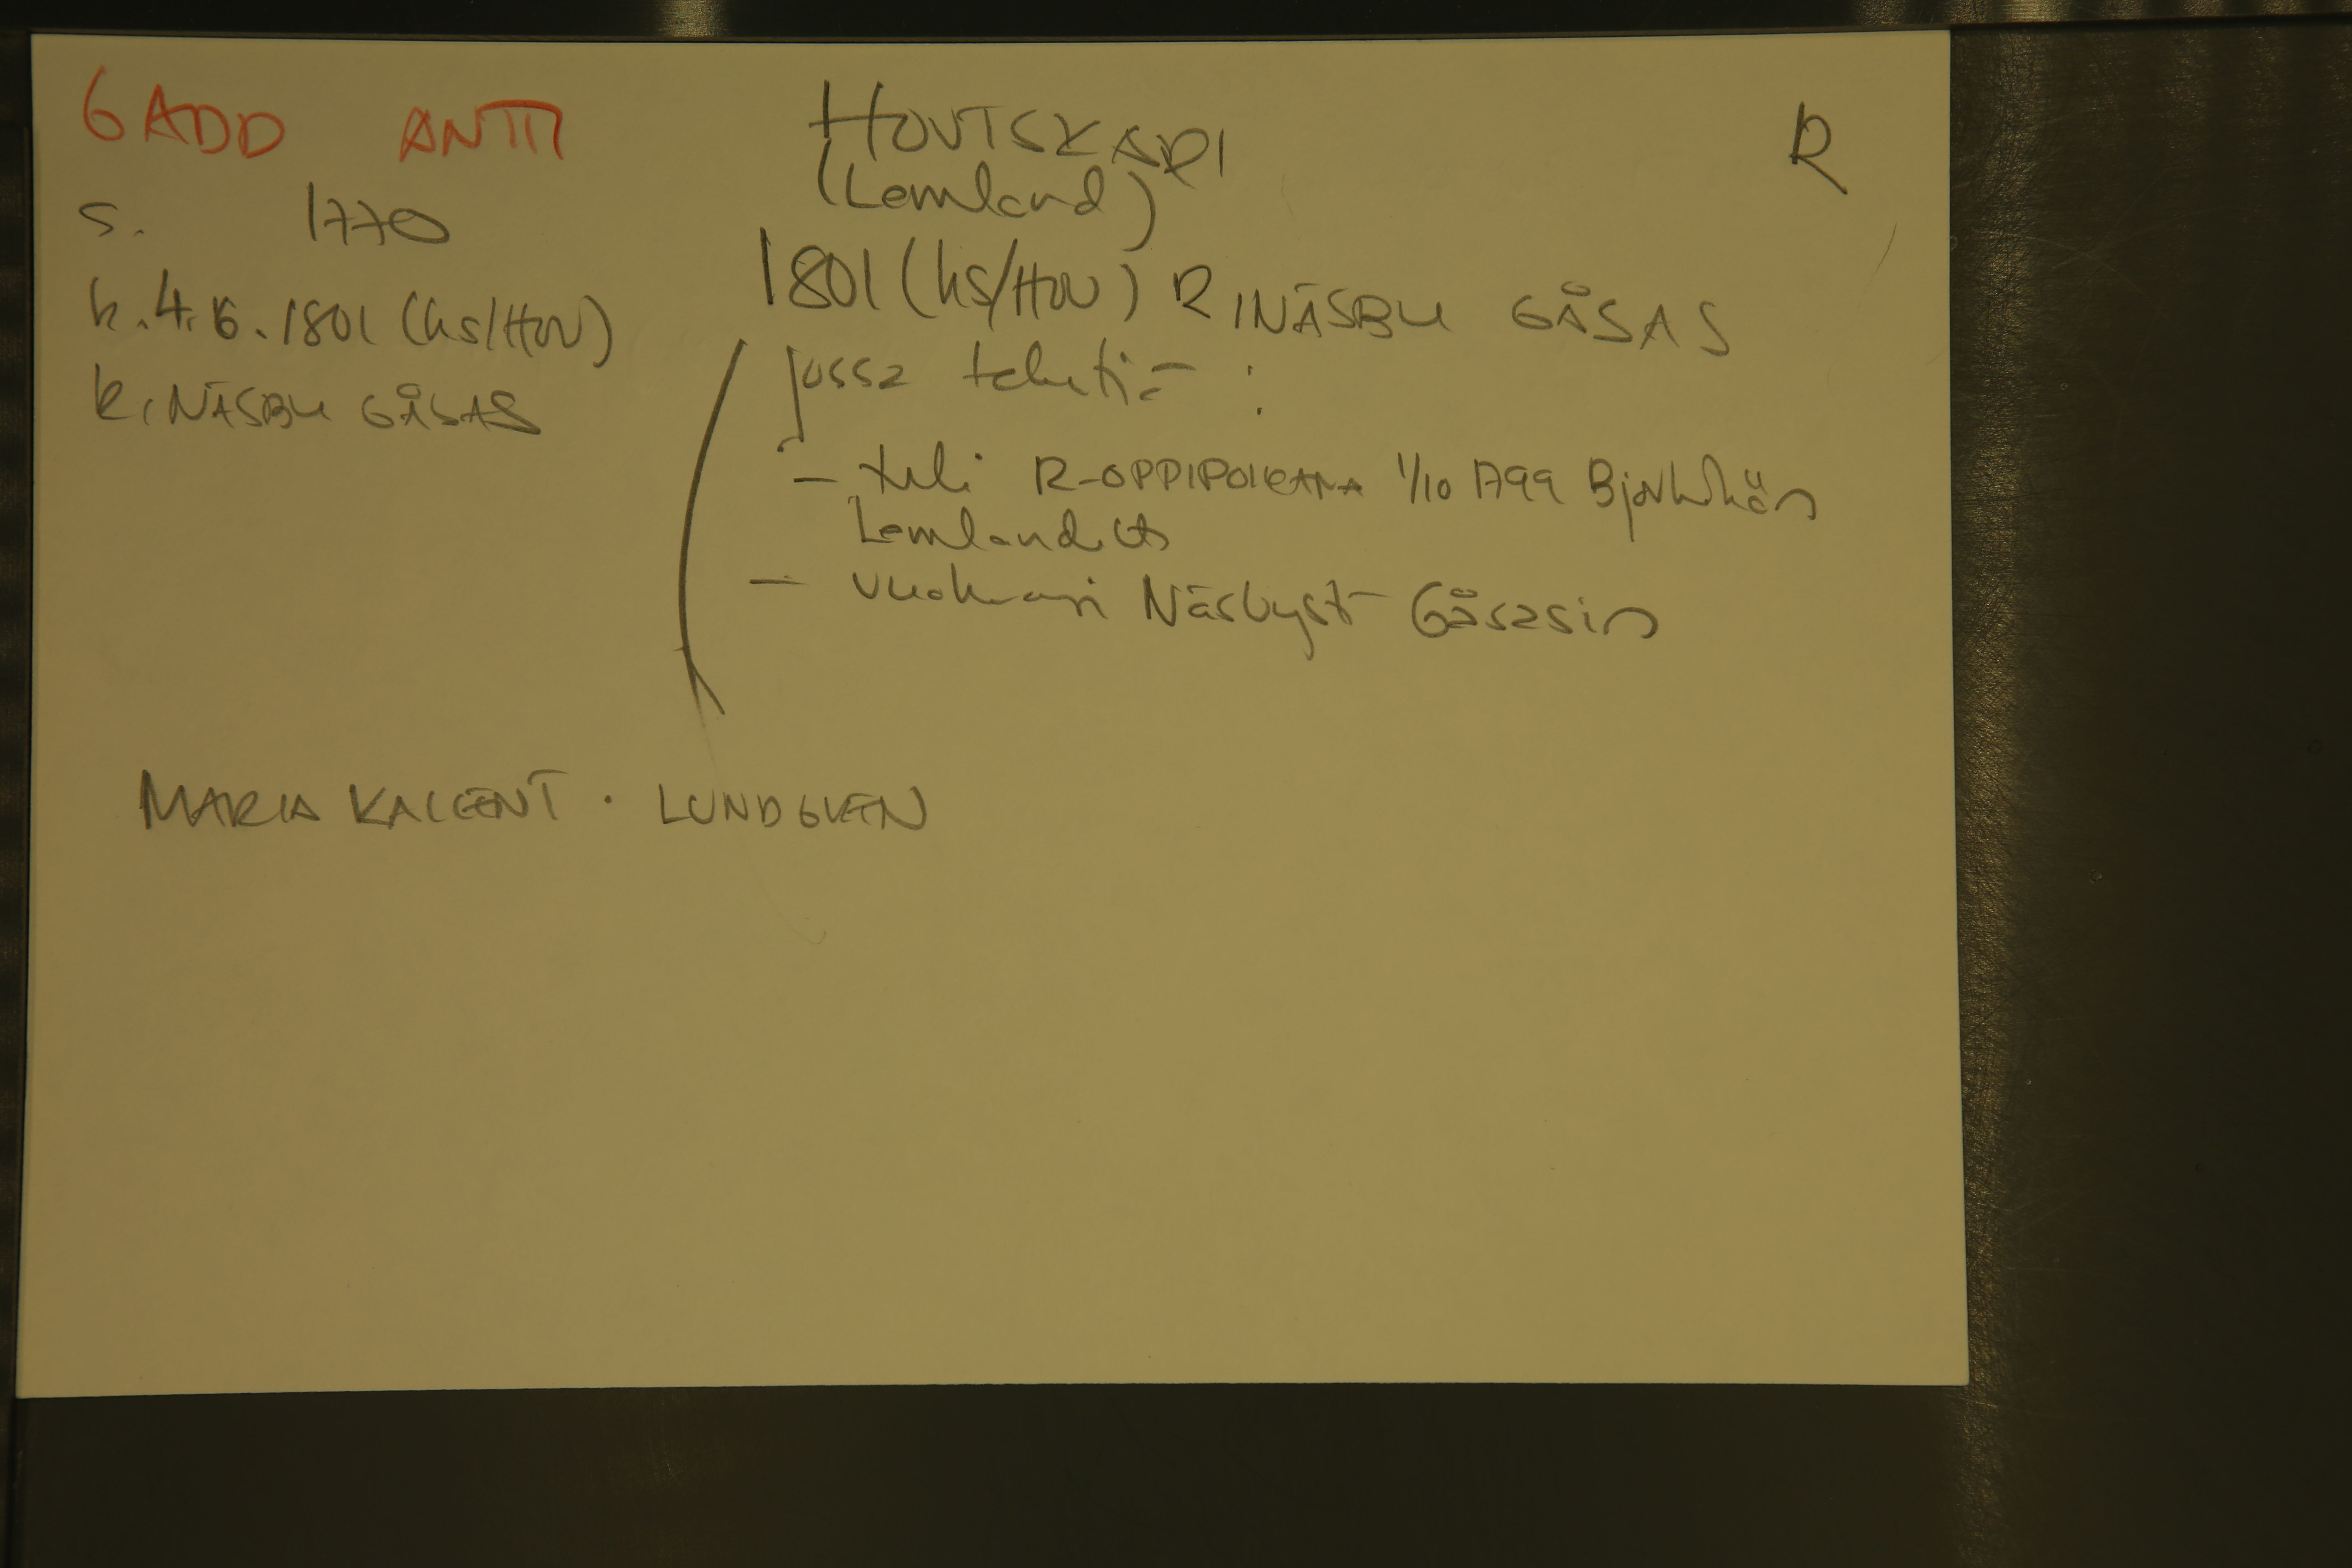 GADD ANTTI
s. 1770
k. 4.6.1801 (ks/HOV)
R, NÄSBY GÅSAS
HOUTSKARI
(Lemland)
R
1801 (ks/HOV) R, NÄSBY GÅSAS
jossa
:
- tuli R-OPPIPOIKANA 1/10 1799 Björkhön
Lemlandista
- vuokrasi Näsbyst Gåsasin
MARIA LUNDGREN